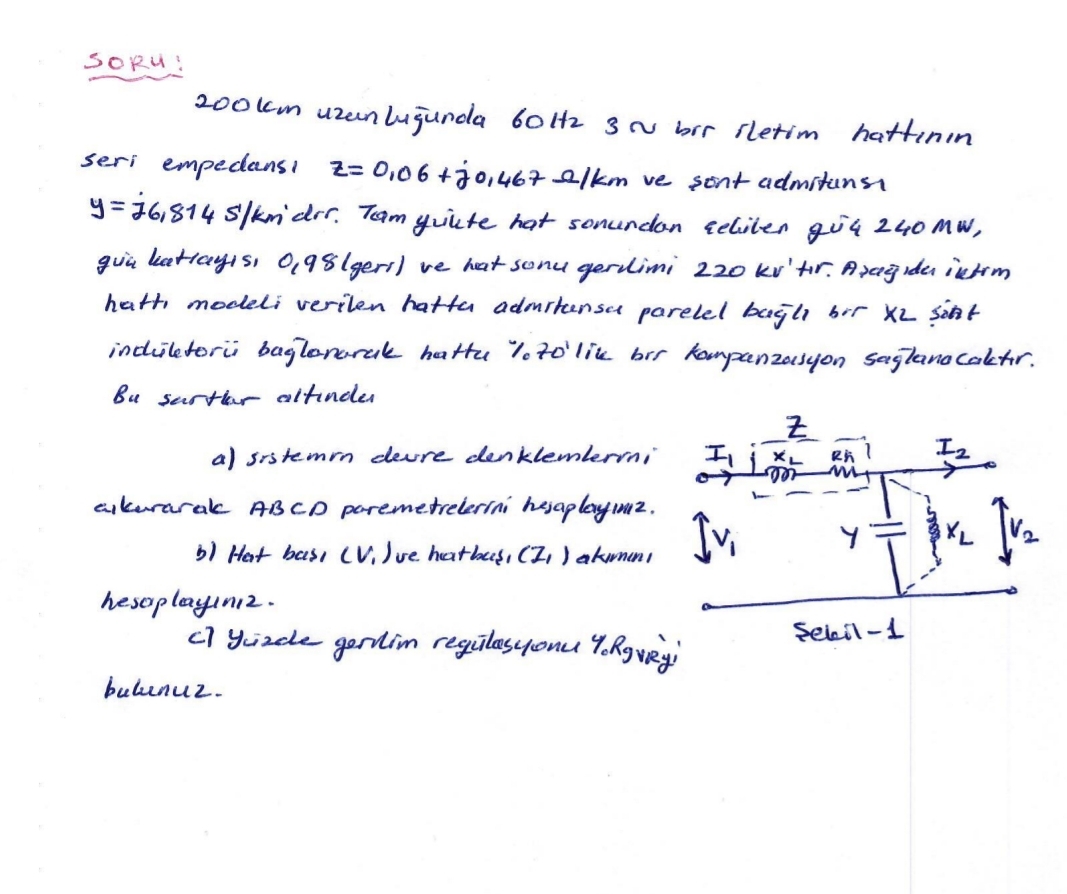 SORU:
200 km uzunluğunda 60 Hz 3 ~ bir iletim hattının
seri empedansı z= 0,06 +j0,467 Ω/km ve şönt admitansı
y= j6,814 S/km'dir. Tam yükte hat sonundan çekilen güç 240 MW,
güç katsayısı 0,98 (geri) ve hat sonu gerilimi 220 kv'tır. Aşağıda iletim
hattı modeli verilen hatta admitansa parelel bağlı bir XL şönt
indüktörü bağlanarak hatta %70'lik bir kompanzasyon sağlanacaktır.
Bu şartlar altında
a) sistemin devre denklemlerini
çıkararak ABCD paremetrelerini hesaplayınız.
b) Hat başı (V1) ve hat başı (I1) akımını
hesaplayınız.
c) Yüzde gerilim regülasyonu %RgVR'yi
bulunuz.
Z
I1 XL Rh I2
V1 Y XL V2
Şekil-1